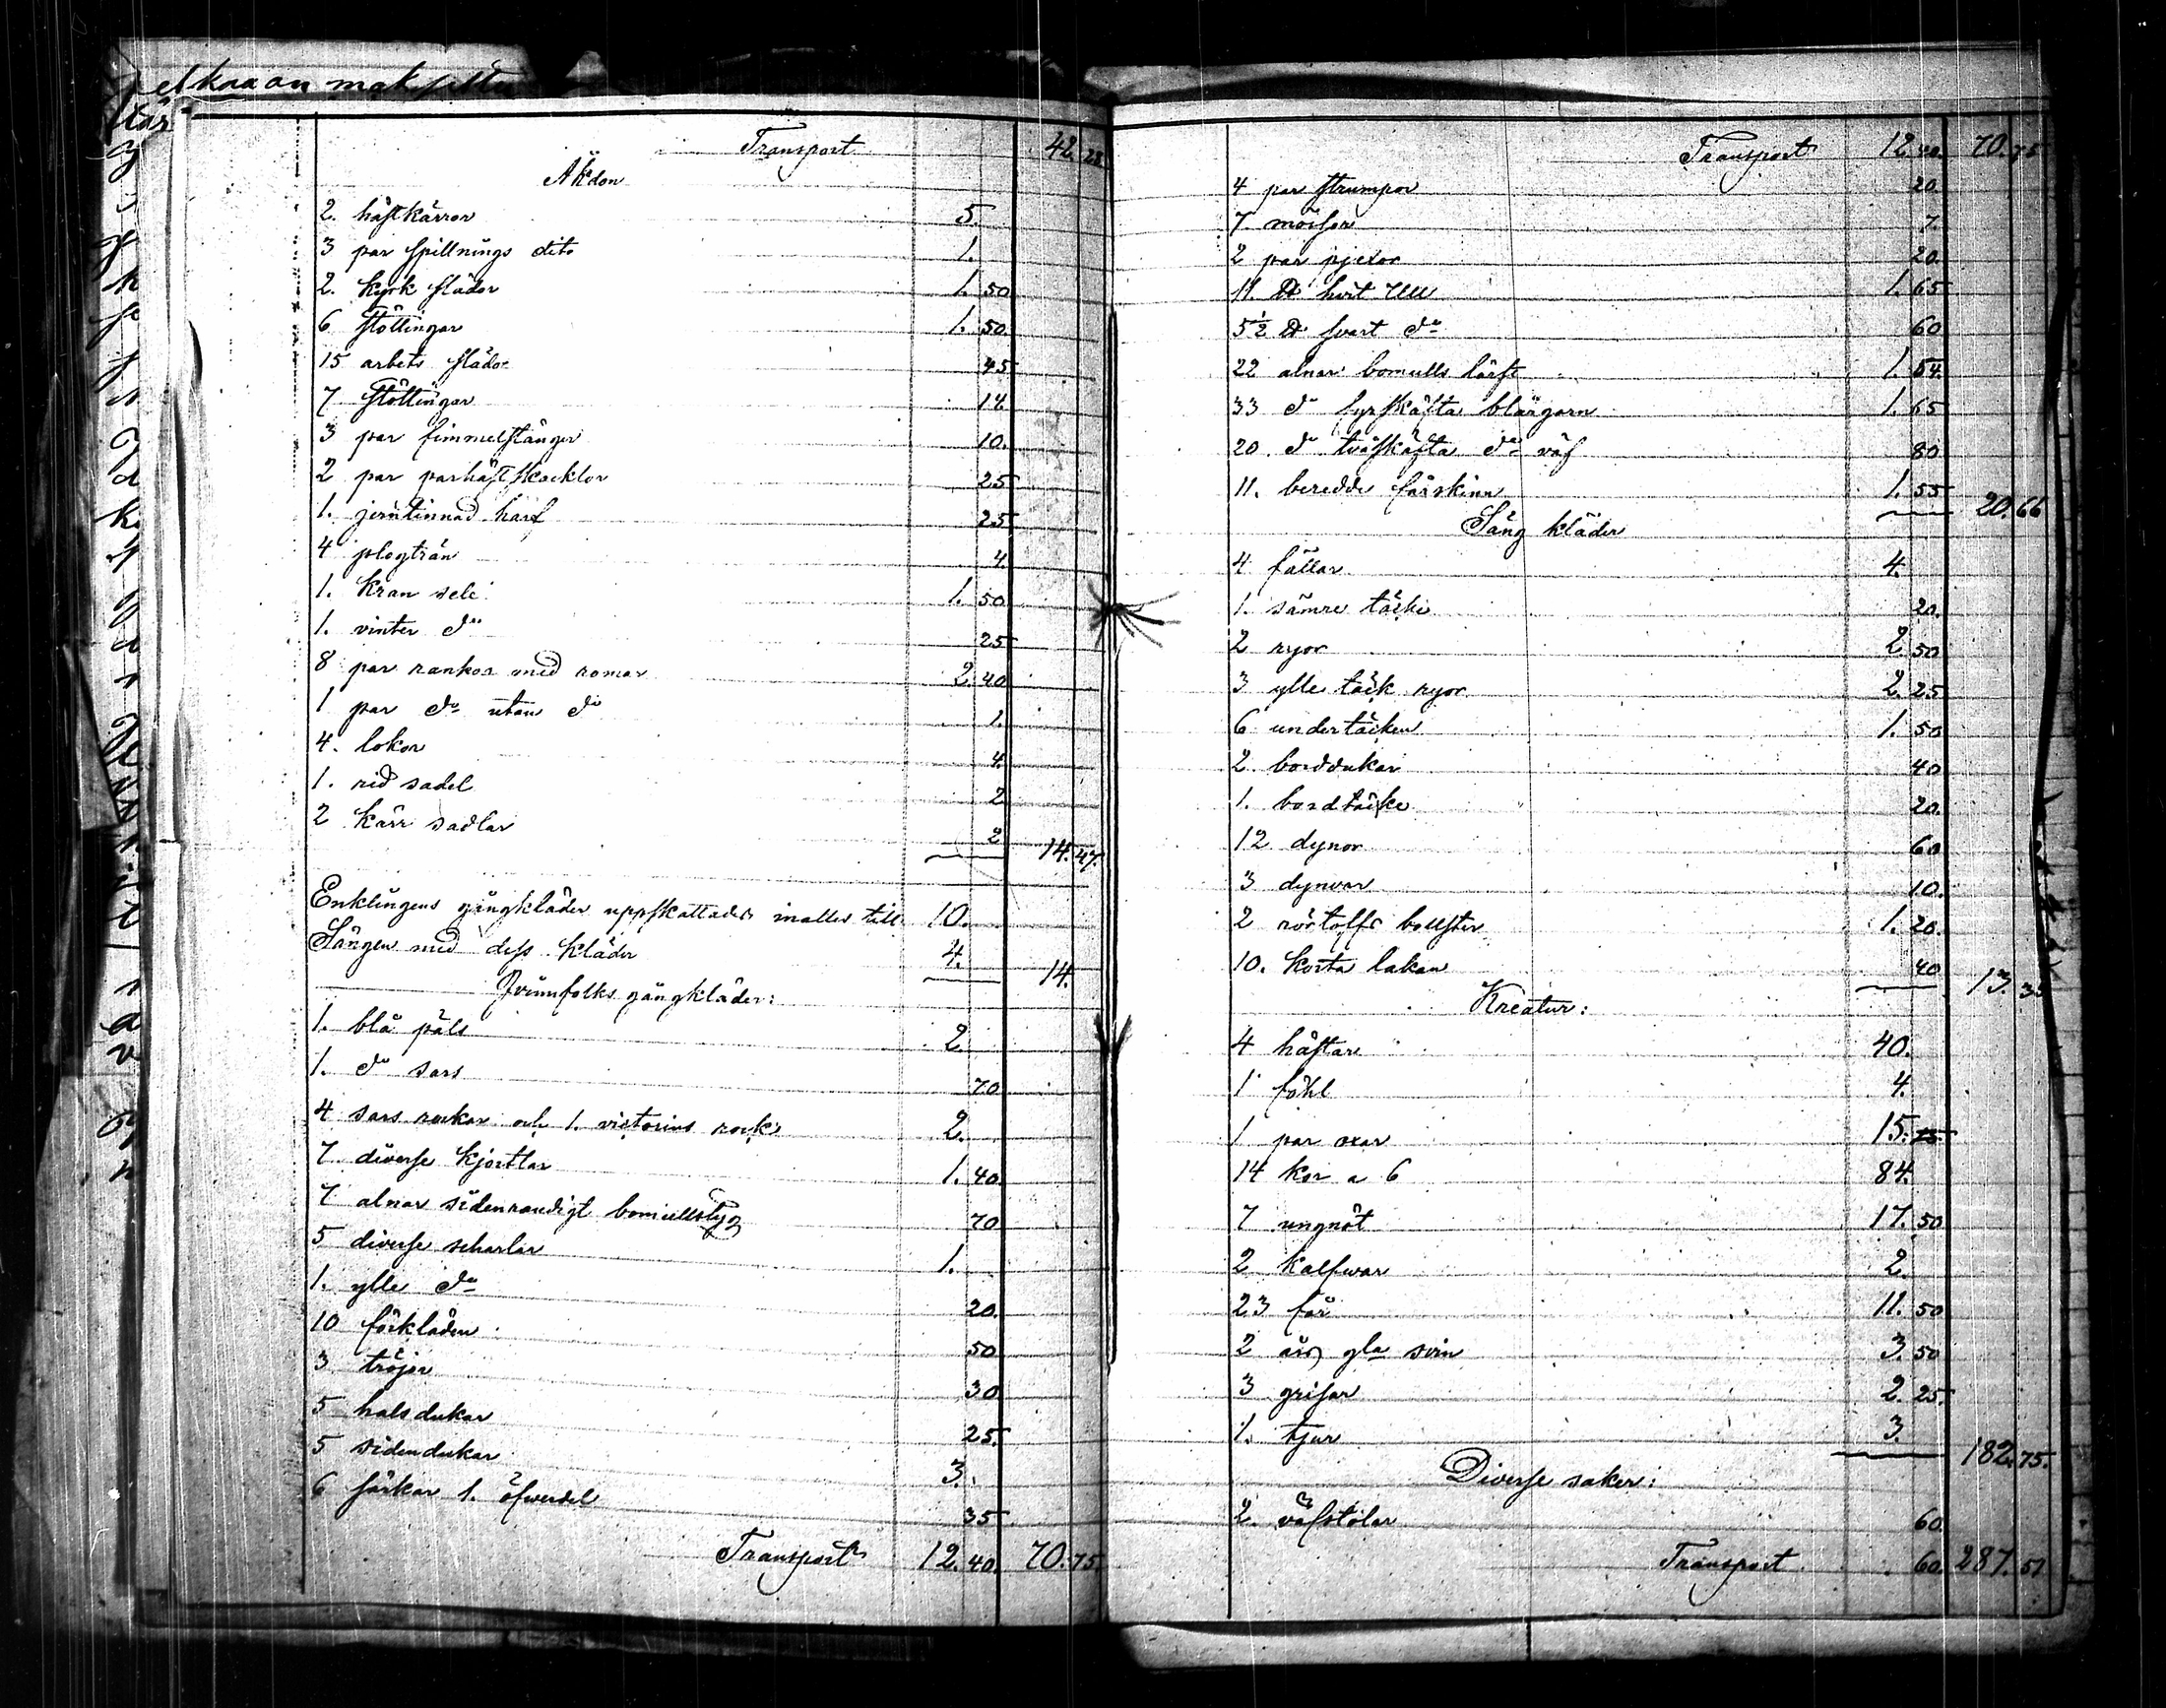 elkaan
Transport 42 28
Åkdon
2. hästkärror 5.
3 par spillnings dito 1.
2. kyrk slädor 1. 50
6 stöttingar 1. 50
15 arbets slädor 45
7 stöttingar 14
3 par fimmelstänger 10.
2 par parhäst skacklor 25
1. jerntinnad harf 25
4 plogträn 4
1. Kran sele 1. 50
1. vinter do 25
8 par rankor med romar 2. 40
1 par do utan do 1.
4. lokor 4.
1. rid sadel 2
2 Kärr sadlar 2 14. 47.
Enklingens gångkläder uppskattades inalles till 10.
Sängen med dess kläder 4. 14.
Qvinnfolks gångkläder:
1. blå päls 2.
1. do sars 70
4 sars rockar och 1. victorius rock 2.
7 diverse kjortlar 1. 40.
7 alnar sidenrandigt bomullstyg 70
5 diverse scharlar 1.
1. ylle do 20.
10 förkläden 50
3 tröjor 30
5 halsdukar 25.
5 sidendukar 3.
6 särkar 1. öfwerdel 35
Transport 12. 40. 70. 75.
Transport 12. 40. 70. 75
4 par strumpor 20.
7 mössor 7.
2 par pjexor 20.
11 ℔ hvit Ull 1. 65
5½ ℔ svart do 60
22 alnar bomulls lärft 1. 54.
33 do fyrskäfta blårgarn 1. 65
20. do tvåskäfta do väf 80
11. beredde fårskinn 1. 55 20. 66
Säng kläder
4 fällar 4.
1. sämre täcke 20.
2 ryor 2. 50
3 ylle täck ryor 2. 25
6 undertäcken 1. 50
2 borddukar 40
1. bordtäcke 20.
12 dynor 60
3 dynvar 10.
2 rörtofts bollster 1. 20.
10. Korta lakan 40 13. 35
Kreatur:
4 hästar 40.
1 föhl 4.
1 par oxar 15.
14 kor a 6 84.
7 ungnöt 17. 50
2 kalfwar 2.
23 får 11. 50
2 års gla svin 3. 50
3 grisar 2. 25.
1. tjur 3. 182. 75.
Diverse saker:
2. väfstolar 60
Transport 60. 287. 51